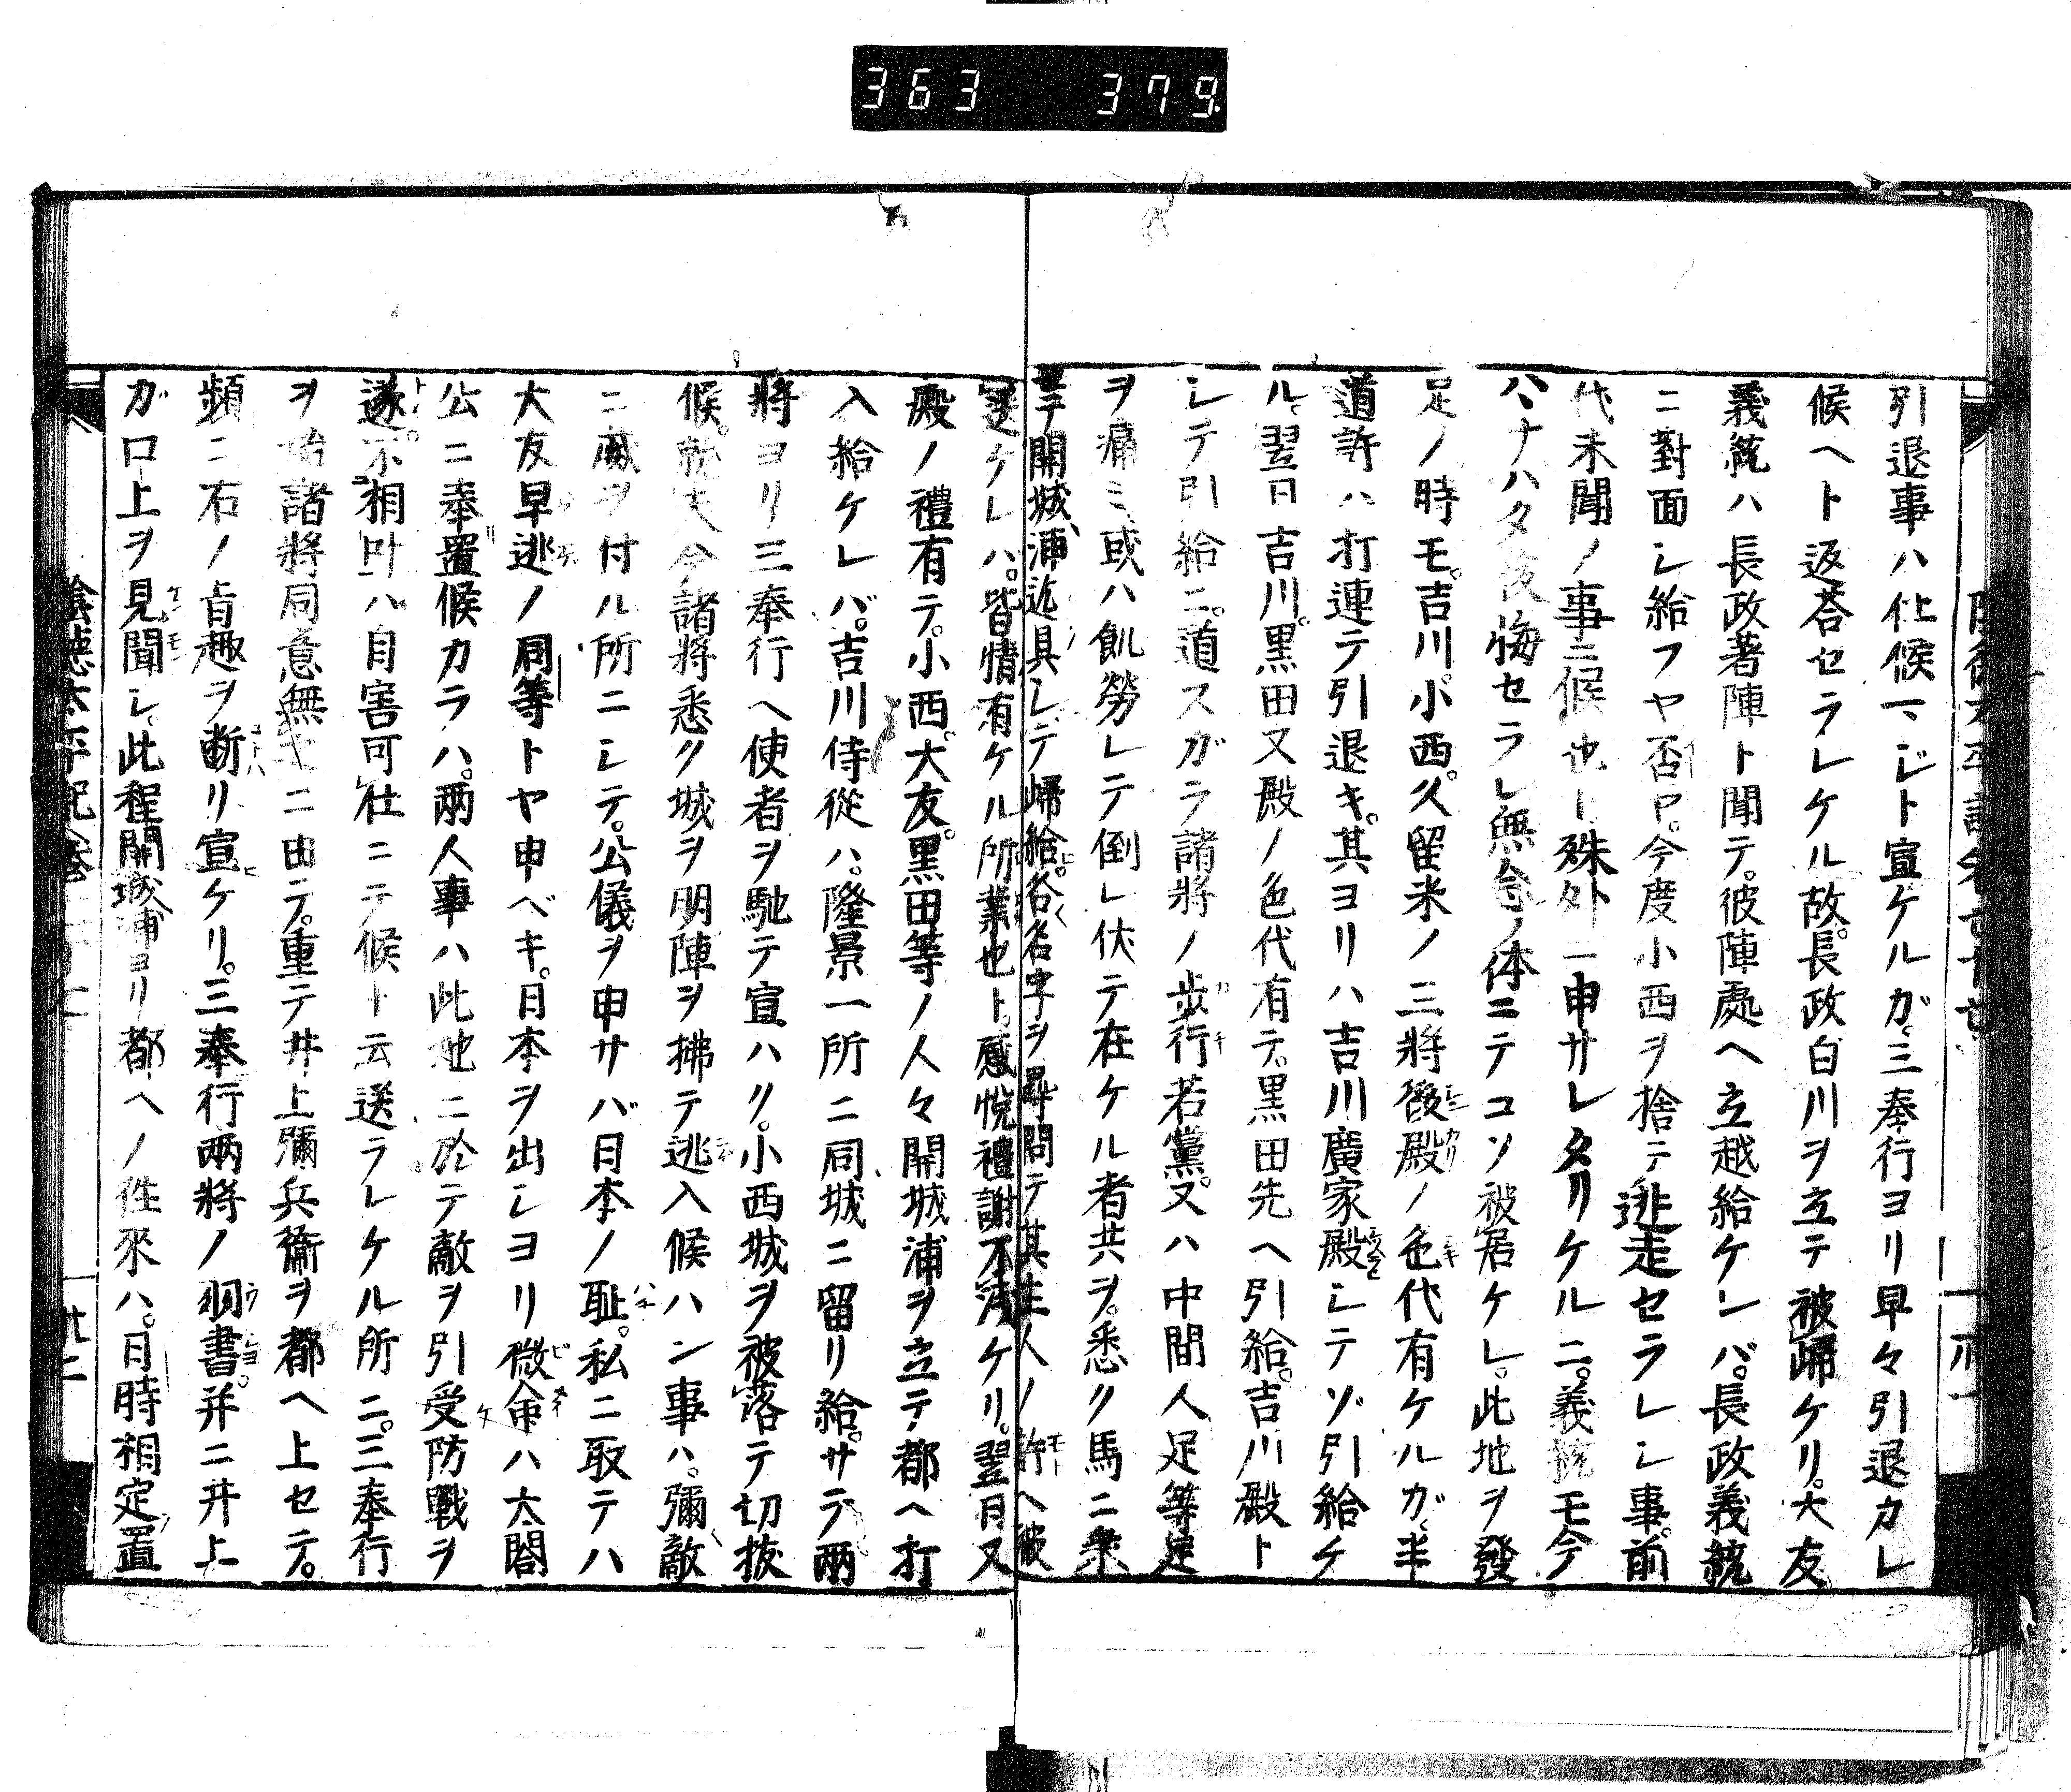 363 379
引退事ハ仕候マジト宣ケルガ。三奉行ヨリ早々引退カレ
候ヘト返荅セラレケル故。長政白川ヲ立テ被歸ケリ。大友
義統ハ長政著陣ト聞テ。彼陣處ヘ立越給ケンバ。長政義統
ニ對面シ給フヤ否ヤ。今度小西ヲ捨テ逃走セラレシ事。前
代未聞ノ事ニ候也ト殊外ニ申サレタリケルニ。義統モ今
ハハナハタ後悔セラレ無念ノ体ニテコソ被居ケレ。此地ヲ發
足ノ時モ。吉川。小西。久留米ノ三將後殿ノ色代有ケルガ。半
道許ハ打連テ引退キ。其ヨリハ吉川廣家殿シテゾ引給ケ
ル。翌日吉川。黒田又殿ノ色代有テ。黒田先ヘ引給。吉川殿ト
シテ引給ニ。道スガラ諸將ノ歩行若黨。又ハ中間人足等足
ヲ痛ミ、或ハ飢勞レテ倒レ伏テ在ケル者共ヲ。悉ク馬ニ乘
セテ開城浦迄具シテ歸給。各名字ヲ尋問テ其主人ノ許ヘ被
送ケレハ。皆情有ケル所業也ト。感悦禮謝不淺ケリ。翌日又
殿ノ禮有テ。小西。大友。黒田等ノ人々開城浦ヲ立テ都ヘ打
入給ケレバ。吉川侍從ハ。隆景一所ニ同城ニ留リ給。サテ兩
將ヨリ三奉行ヘ使者ヲ馳テ宣ハク。小西城ヲ被落テ切拔
候。就夫今諸將悉ク城ヲ明陣ヲ拂テ逃入候ハン事ハ。彌敵
ニ威ヲ付ル所ニシテ。公儀ヲ申サバ日本ノ耻。私ニ取テハ
大友早逃ノ同等トヤ申ベキ。日本ヲ出シヨリ微命ハ太閤
公ニ奉置候カラハ。兩人事ハ此地ニ於テ敵ヲ引受防戰ヲ
遂。不相叶ハ自害可仕ニテ候ト云送ラレケル所ニ。三奉行
ヲ始諸將同意無ニ由テ。重テ井上彌兵衞ヲ都ヘ上セテ。
頻ニ右ノ旨趣ヲ斷リ宣ケリ。三奉行兩將ノ羽書并ニ井上
ガ口上ヲ見聞シ。此程開城浦ヨリ都ヘノ徃來ハ。日時相定置
陰德太平記卷
卅二